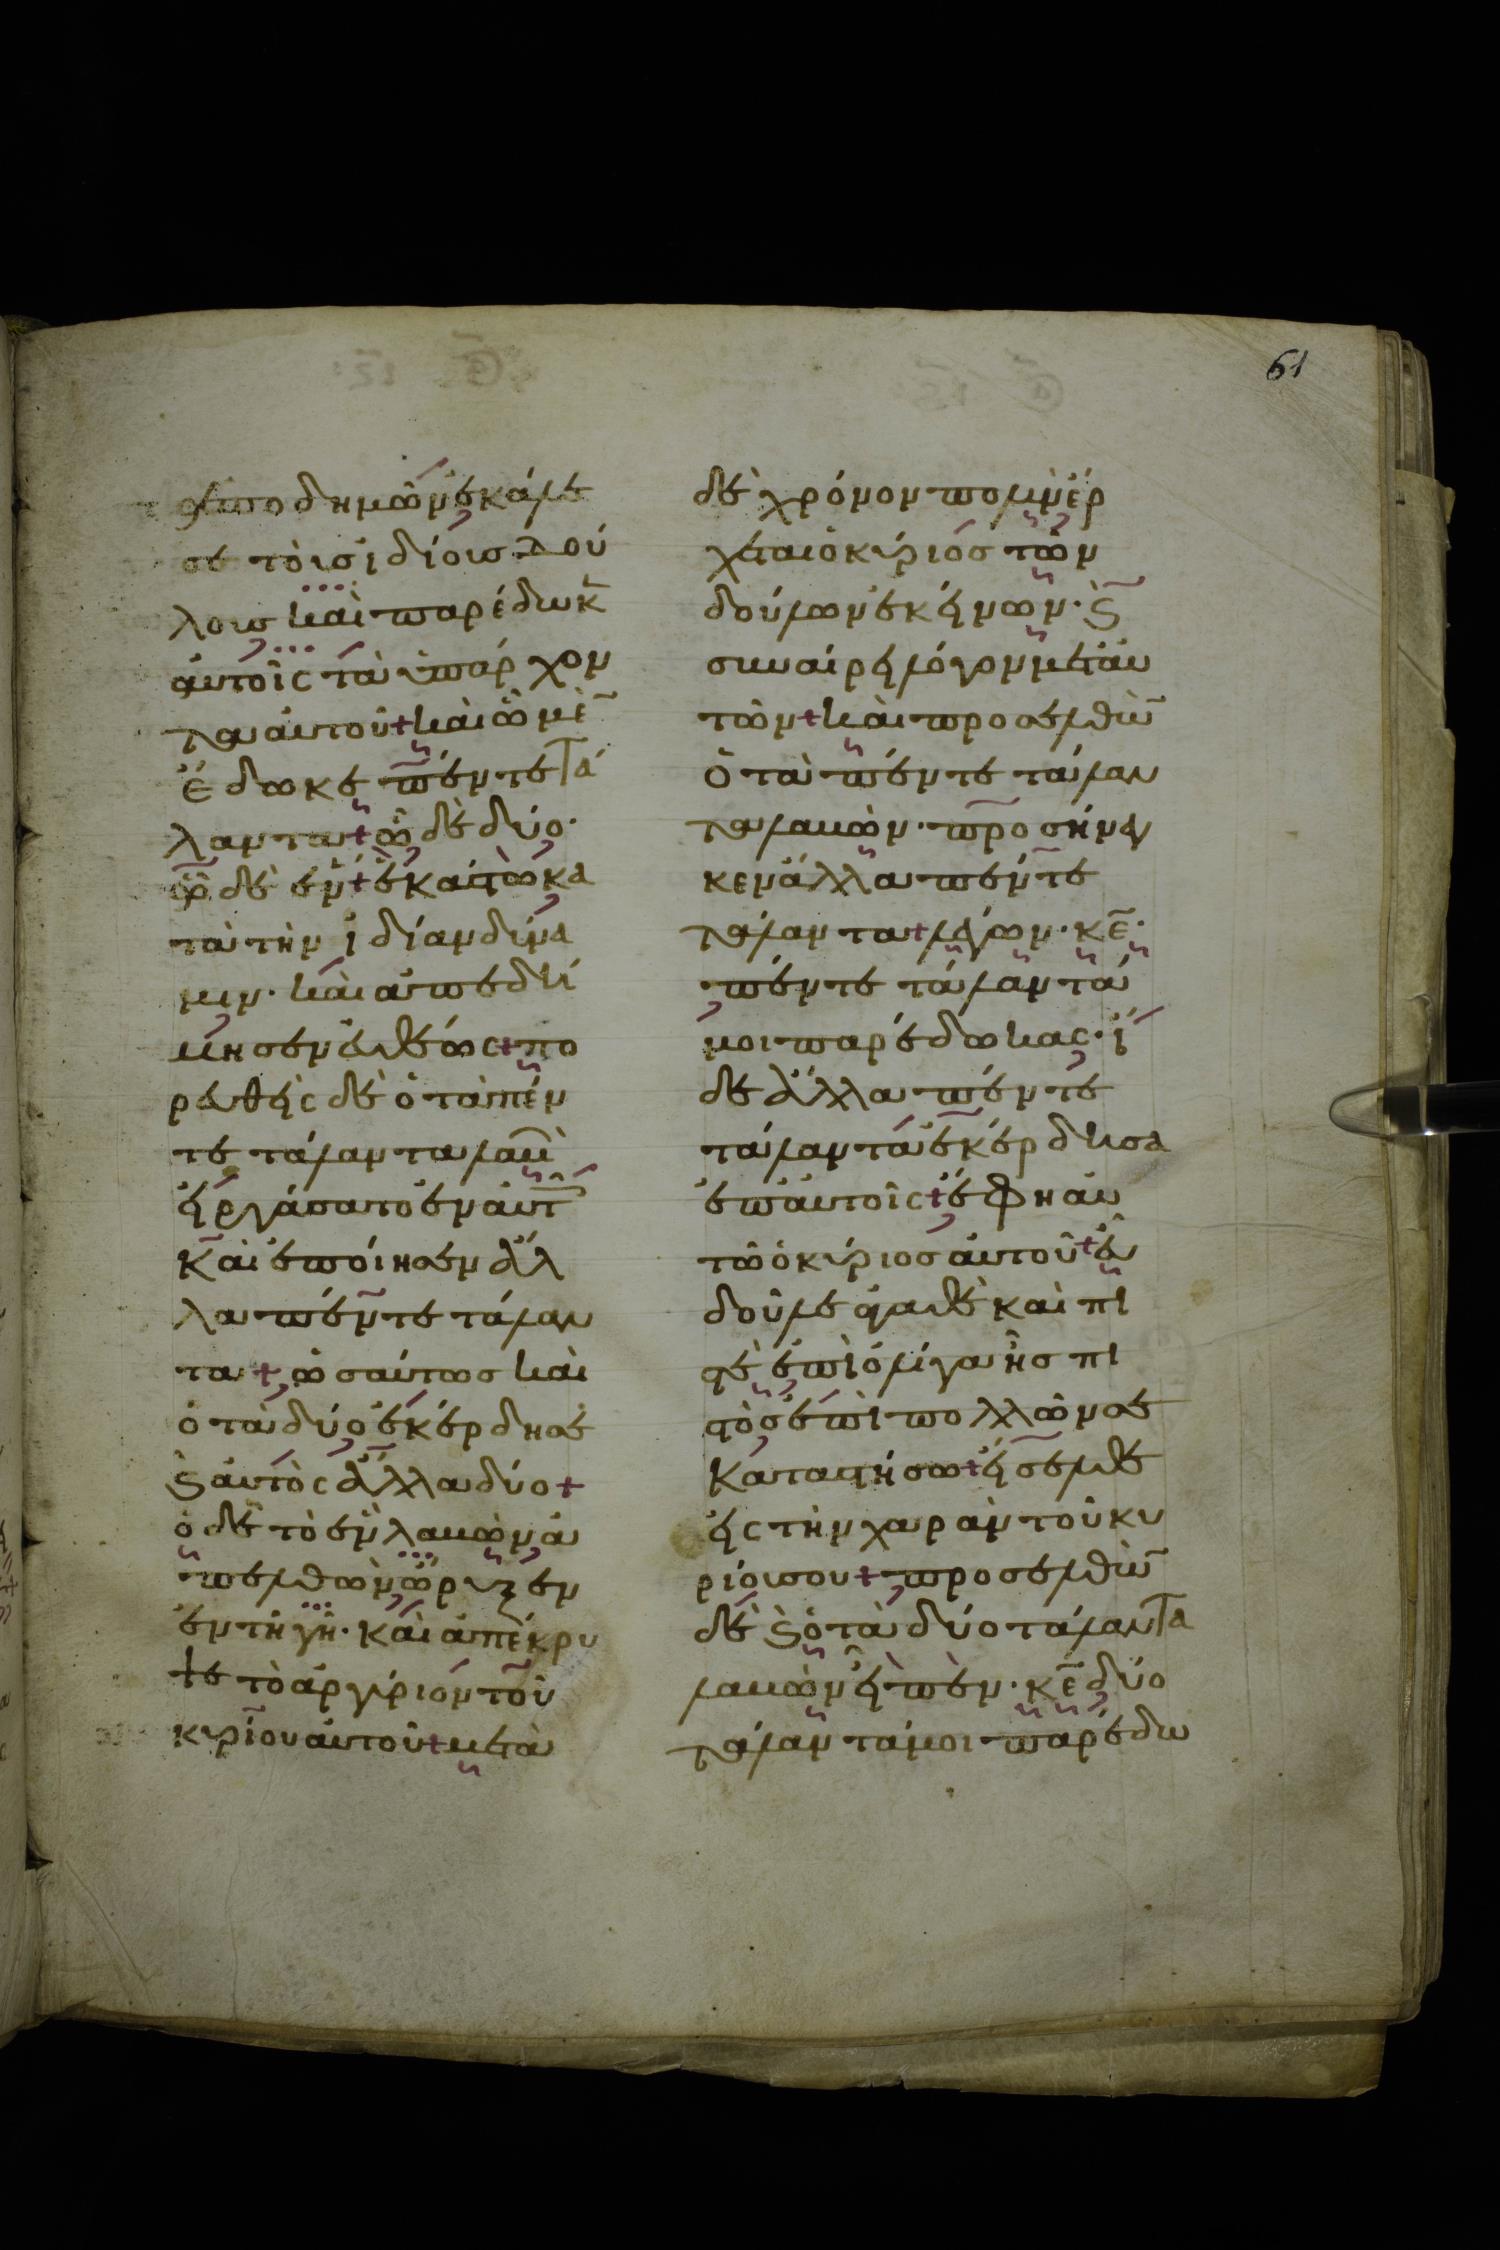 61
ποδημῶν ἐκάλε
σε τοὺς ἰδίους δού
λους καὶ παρέδωκ̅
αὐτοῖς τὰ ὑπάρχον
τα αὐτοῦ + καὶ ὧ μὲ̅
ἔδωκε πέντε τά
λαντα + ὧ δὲ δύο·
ὧ δὲ ἕν + ἑκάστω κα
τὰ τὴν ἰδίαν δύνα
μιν· καὶ ἀπεδή
μησεν εὐθέως + πο
ρευθεὶς δὲ ὁ τὰ πέν
τε τάλαντα λαβὼ̅
εἰργάσατο ἐν αὐτ
καὶ ἐποίησεν ἄλ
λα πέντε τάλαν
τα + ὡσαύτως καὶ
ὁ τὰ δύο ἐκέρδησε
ϗ αὐτὸς ἄλλα δύο +
ὁ δὲ τὸ ἓν λαβὼν ἀ
πελθὼν ὤρυξεν
ἐν τῆ γῆ· καὶ ἀπέκρυ
ψε τὸ ἀργύριον τοῦ
κυρίου αὐτοῦ + μετὰ
δὲ χρόνον πολὺν ἔρ
χεται ὁ κύριος τῶν
δούλων ἐκείνων· ϗ
συναίρει λόγον μετ' αὐ
τῶν + καὶ προσελθὼ̅
ὁ τὰ πέντε τάλαν
τα λαβὼν· προσήνεγ
κεν ἄλλα πέντε
τάλαντα + λέγων· κ̅ε̅·
πέντε τάλαντά
μοι παρέδωκας· ἴ
δε ἄλλα πέντε
τάλαντα ἐκέρδησα
ἐπ' αὐτοῖς + ἔφη αὐ
τῶ ὁ κύριος αὐτοῦ + εὖ
δοῦλε ἀγαθὲ καὶ πι
στὲ ἐπὶ ὀλίγα ἦς πι
στὸς ἐπὶ πολλῶν σε
καταστήσω + εἴσελθε
εἰς τὴν χαρὰν τοῦ κυ
ρίου σου + προσελθὼ̅
δὲ ϗ ὁ τὰ δύο τάλαντα
λαβὼν εἶπεν· κ̅ε̅ δύο
τάλαντά μοι παρέδω